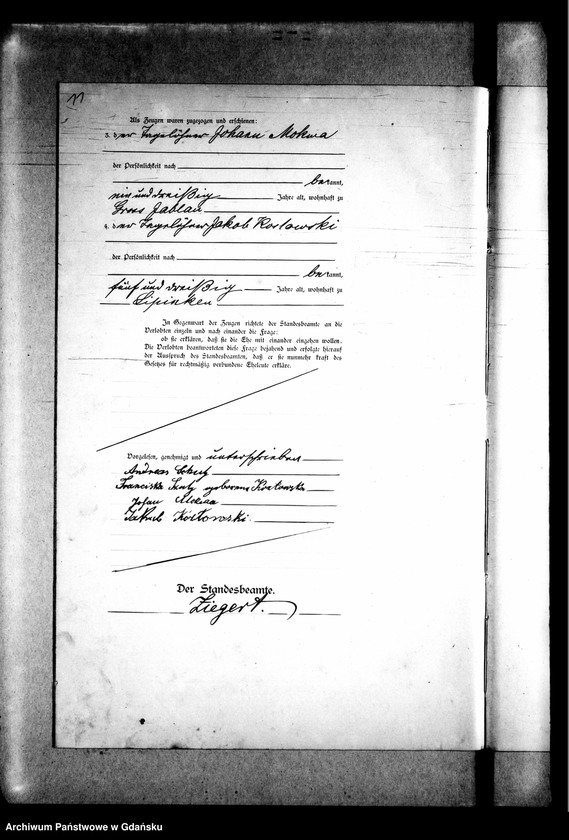 11
Als Zeugen waren zugezogen und erschienen:
3. der Tagelöhner Johann Mokwa
der Persönlichkeit nach
bekannt,
ein und dreißig Jahre alt, wohnhaft zu
Gross Jablau
4. der Tagelöhner Jakob Kostowski
der Persönlichkeit nach
bekannt,
fünf und dreißig Jahre alt, wohnhaft zu
Lipinken
In Gegenwart der Zeugen richtete der Standesbeamte an die
Verlobten einzeln und nach einander die Frage:
ob sie erklären, daß sie die Ehe mit einander eingehen wollen.
Die Verlobten beantworteten diese Frage bejahend und erfolgte hierauf
der Ausspruch des Standesbeamten, daß er sie nunmehr kraft des
Gesetzes für rechtmäßig verbundene Eheleute erkläre.
Vorgelesen, genehmigt und unterschrieben
Andreas
Franciska geborene
Johan Mokwa
Jakub Kostowski
Der Standesbeamte.
Ziegert.
Archiwum Państwowe w Gdańsku